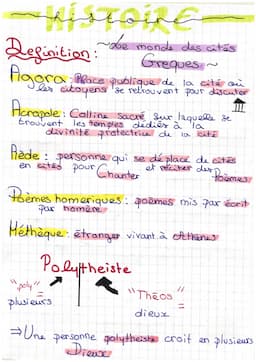 HISTOIRE
Définition :
~Le monde des cités
Grecques~
Agora : Place publique de la cité où
les citoyens se retrouvent pour discuter
Acropole : Colline sacré sur laquelle se
trouvent les temples dédiés à la
divinité protectrice de la cité
Aède : personne qui se déplace de cités
en cités pour Chanter et réciter des Poèmes
Poèmes homeriques : poèmes mis par écrit
par homère
Méthèque : étranger vivant à Athènes
Polytheiste
"poly" =
plusieurs
"Théos" =
dieux
⇒ Une personne polytheiste croit en plusieurs
Dieux